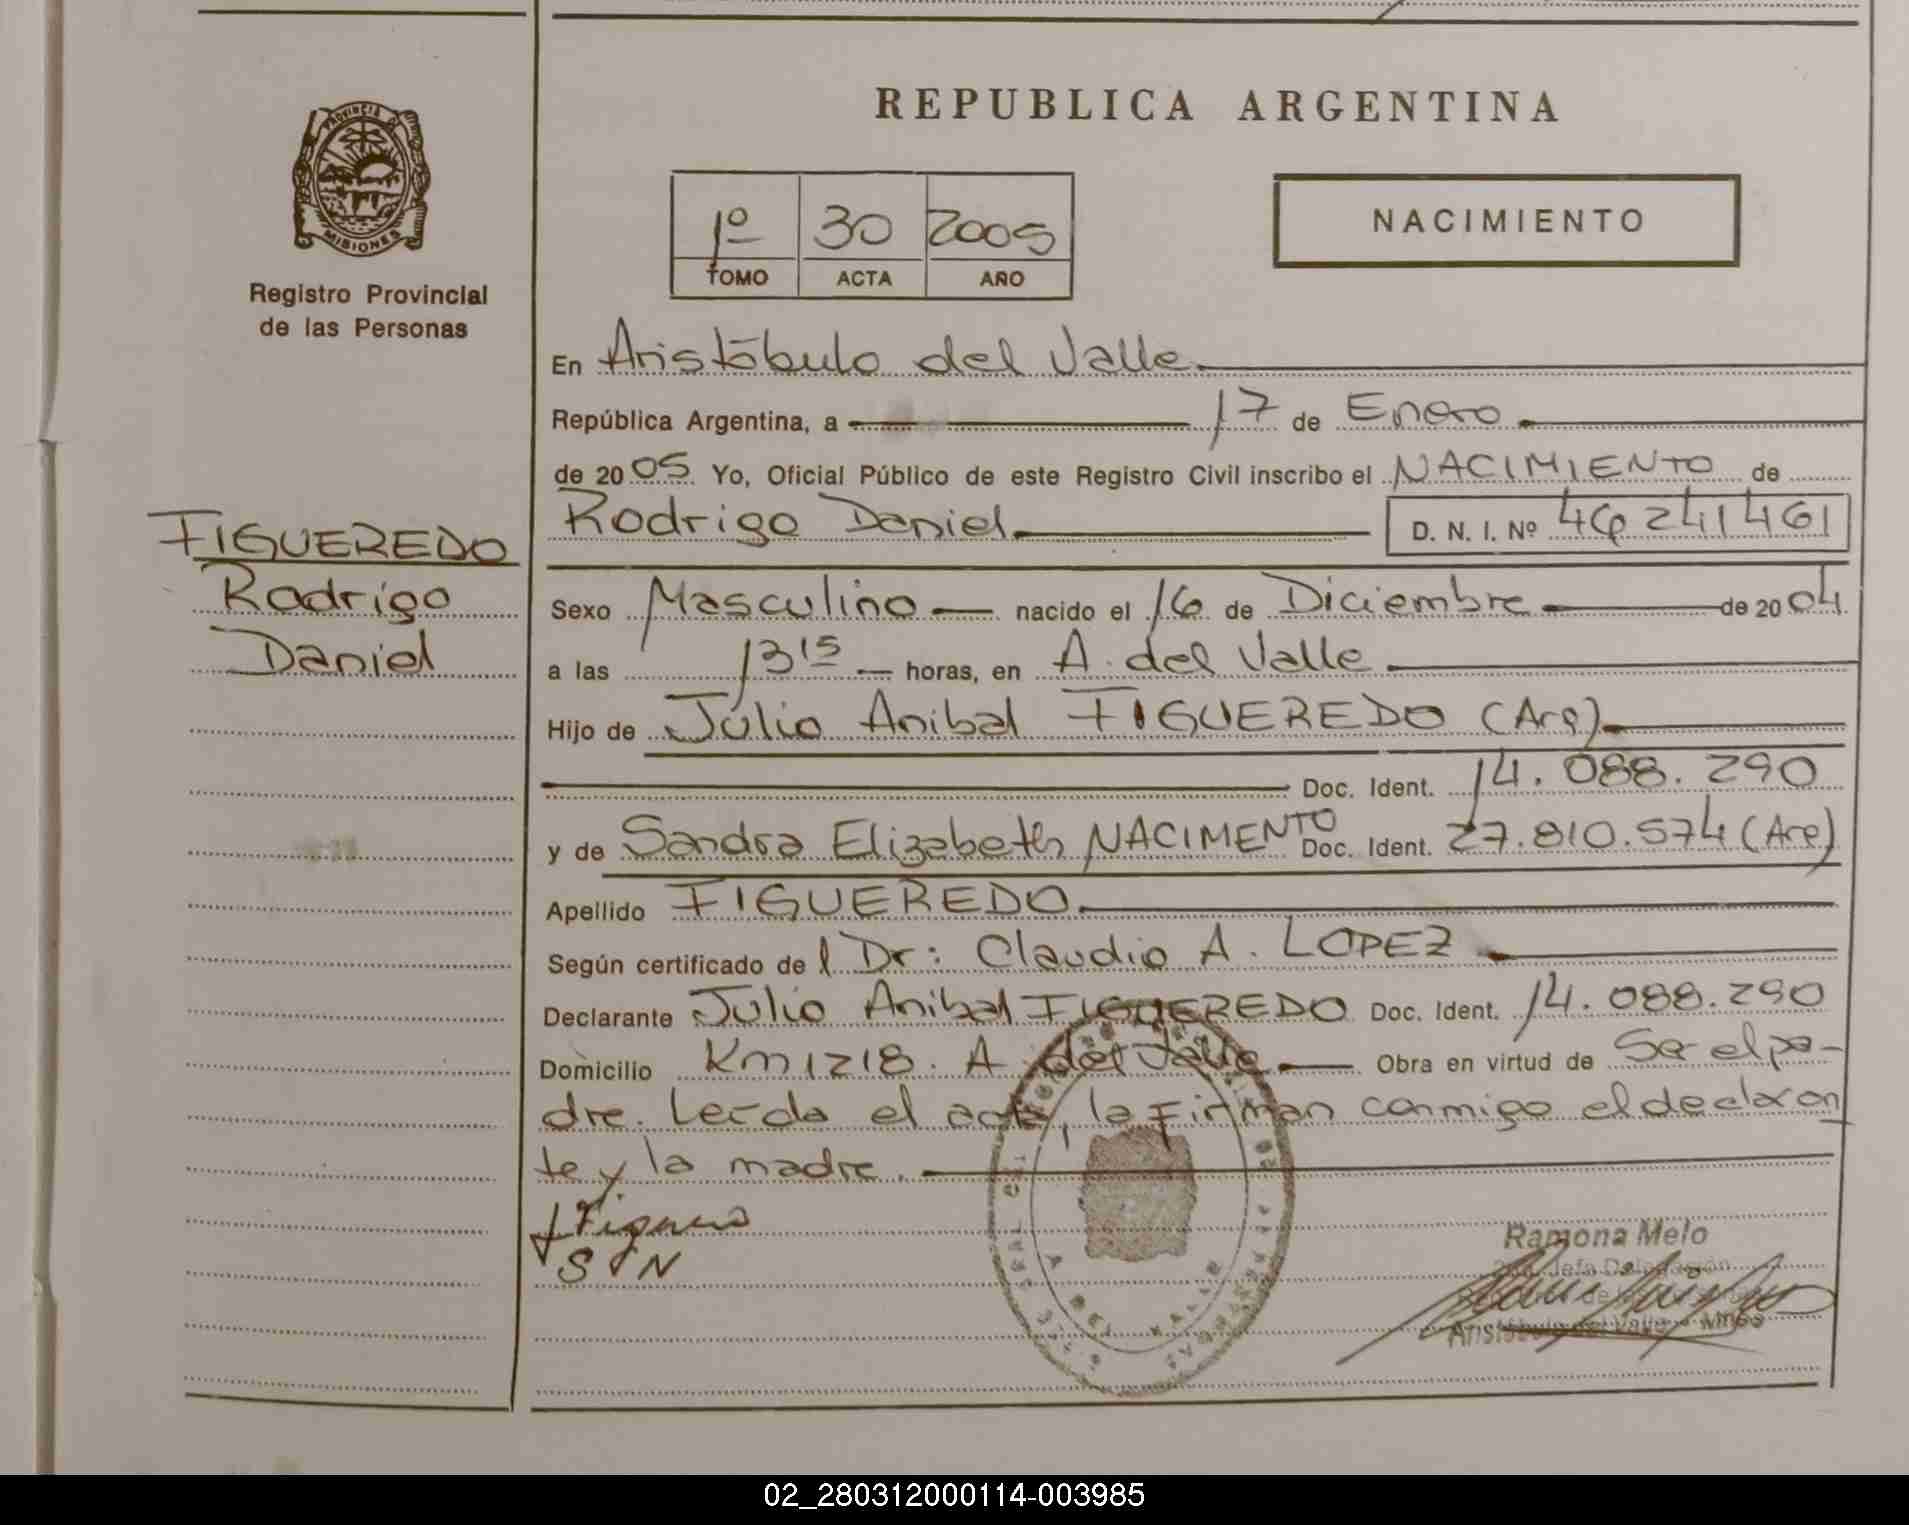 PROVINCIA D
MISIONES
Registro Provincial
de las Personas
FIGUEREDO
Rodrigo
Daniel
REPUBLICA ARGENTINA
1º 30 2005
TOMO ACTA AÑO
NACIMIENTO
En Aristóbulo del Valle
República Argentina, a 17 de Enero
de 2005 Yo, Oficial Público de este Registro Civil inscribo el NACIMIENTO de
Rodrigo Daniel D. N. I. Nº 46241461
Sexo Masculino nacido el 16 de Diciembre de 2004
a las 13 15 horas, en A. del Valle
Hijo de Julio Anibal FIGUEREDO (Arg)
Doc. Ident. 14.088.290
y de Sandra Elizabeth NACIMENTO Doc. Ident. 27.810.574 (Arg)
Apellido FIGUEREDO
Según certificado de l Dr: Claudio A. LOPEZ
Declarante Julio Anibal FIGUEREDO Doc. Ident. 14.088.290
Domicilio Km 1218. A del Valle Obra en virtud de Ser el pa-
dre. Leída el acta, la firman conmigo el declaran
te y la madre.
S N
Ramona Melo
Jefa Delegación
Aristóbulo del Valle - Mnes
A DEL VALLE
02_280312000114-003985